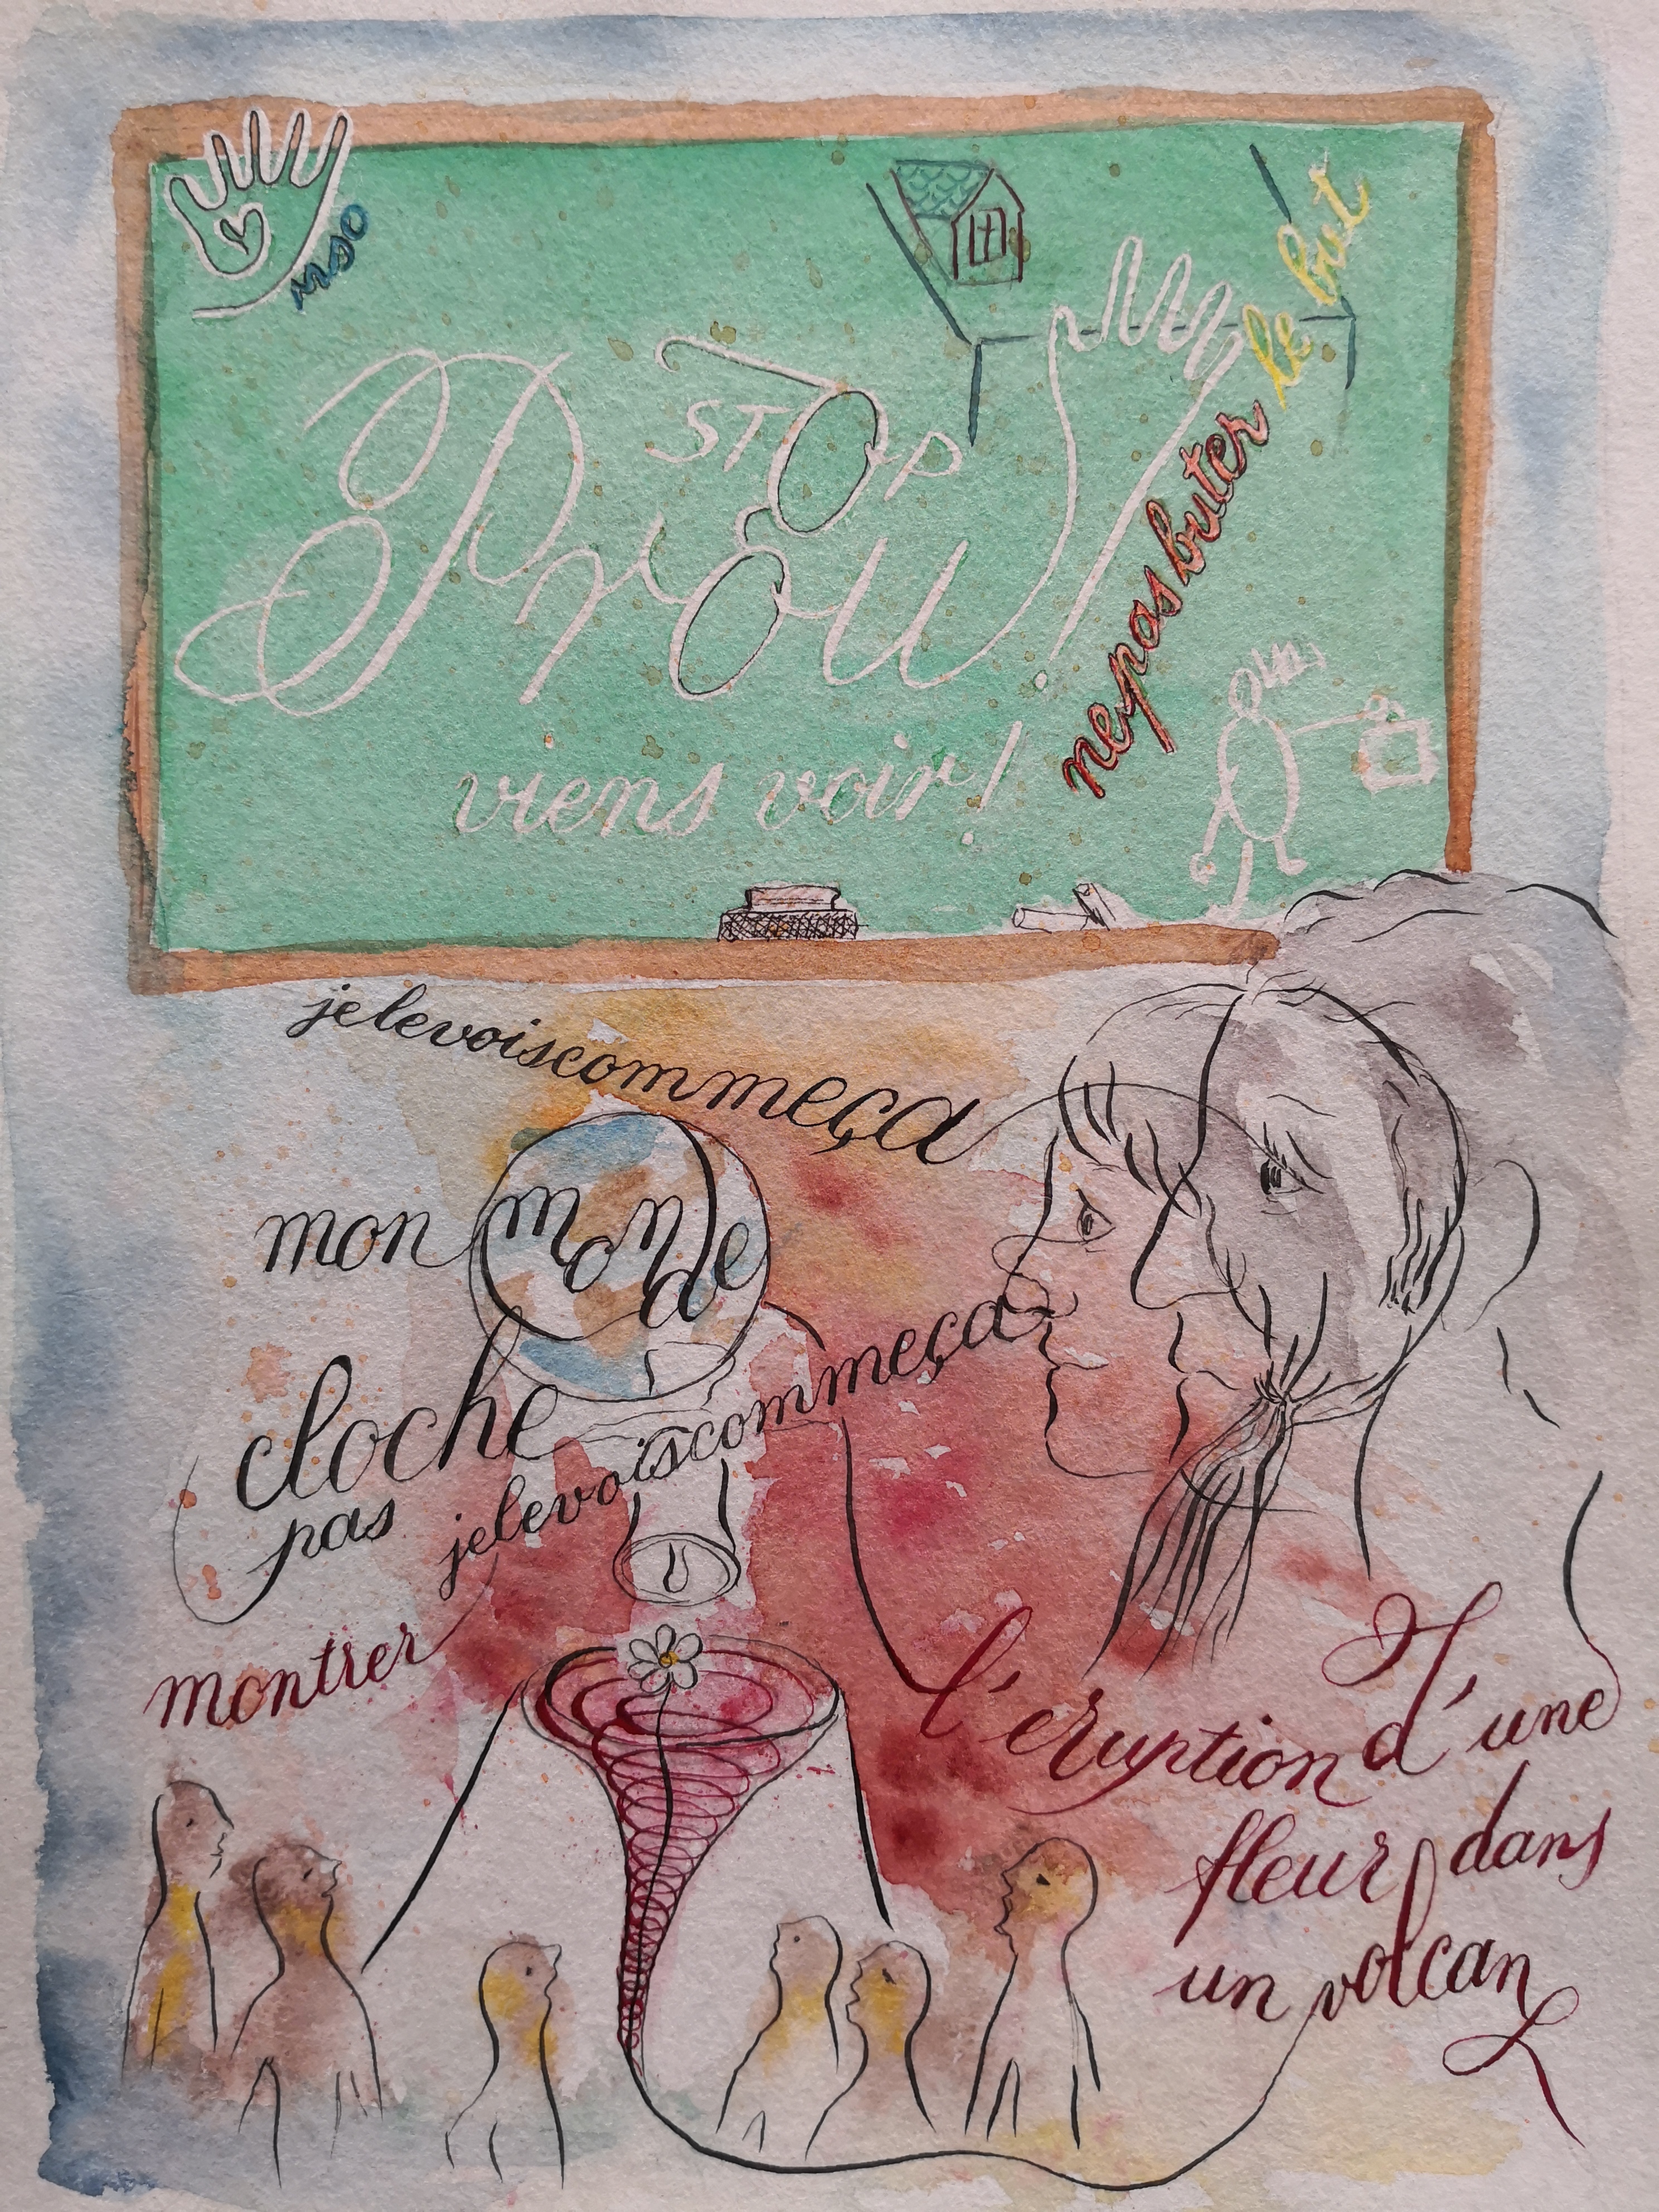 mso
STOP
Proust
viens voir!
nepasbuter le but
jelevoiscommeça
mon monde
cloche
pas jelevoiscommeça
montrer
l'eruption d'une
fleur dans
un volcan